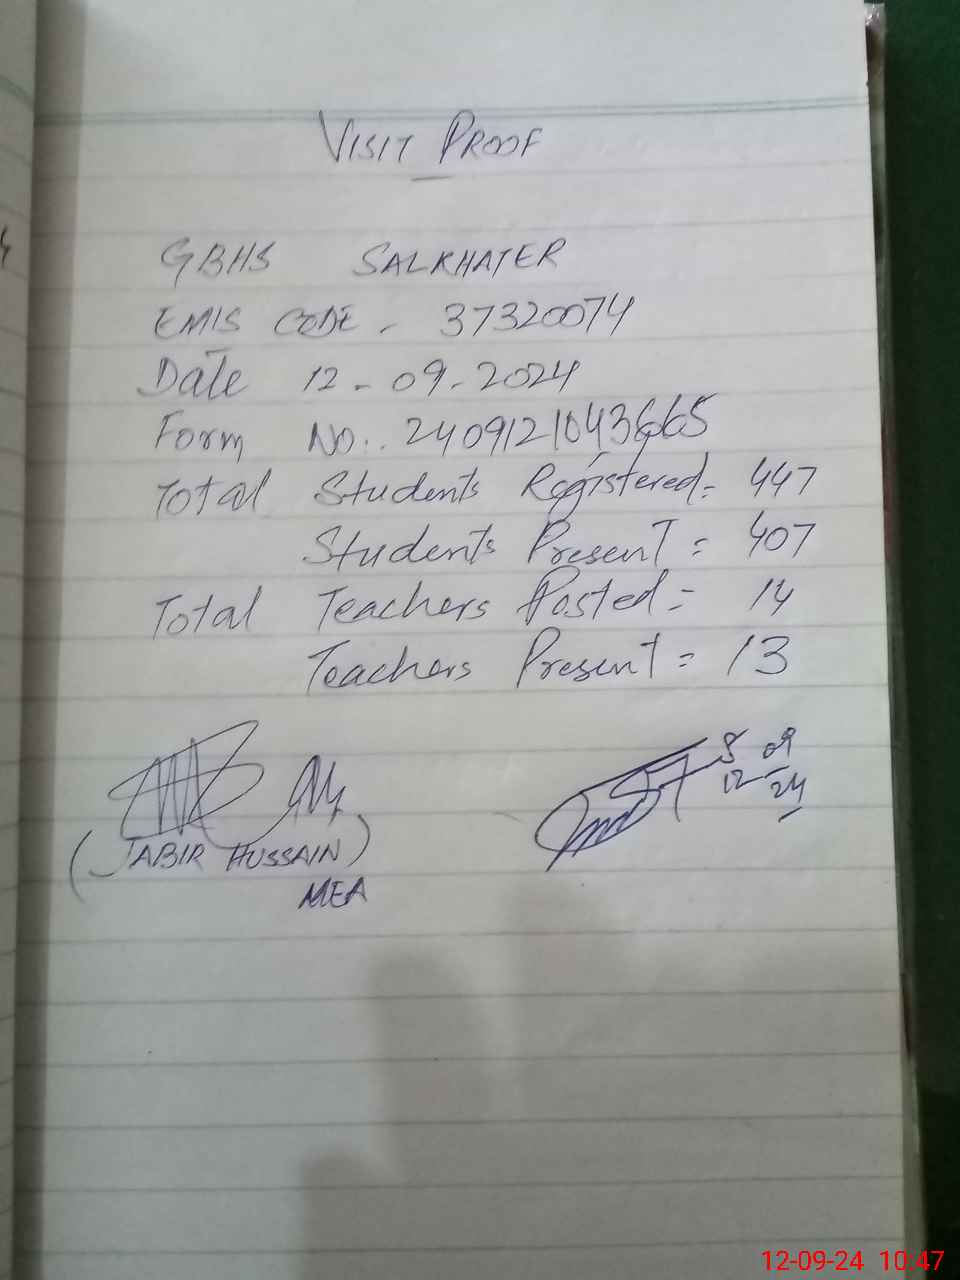 VISIT PROOF
GBHS SALKHATER
EMIS CODE - 37320074
Date 12-09-2024
Form No:. 2409121043665
Total Students Registered = 447
Students Present = 407
Total Teachers Posted = 14
Teachers Present = 13
12 09
24
(JABIR HUSSAIN)
MEA
12-09-24 10:47